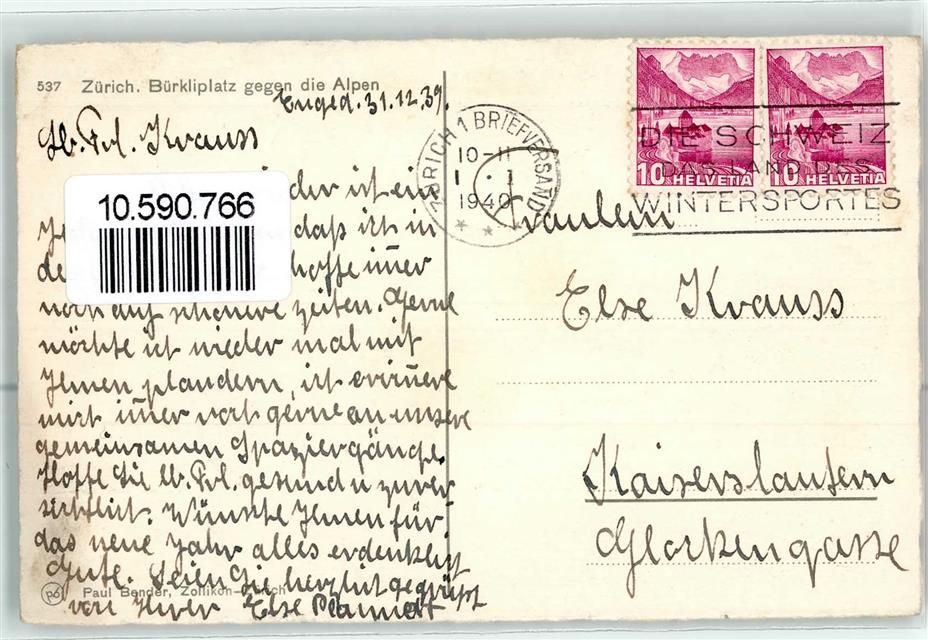 537 Zürich. Bürkliplatz gegen die Alpen
Enged. 31.12.39.
Lb. Frl. Krauss
der ist ein
daß ich in
hoffe im̄er
noch auf schönere Zeiten. Gerne
möchte ich wieder mal mit
Ihnen plaudern, ich erin̄ere
mich im̄er noch gerne an unsere
gemeinsamen Spaziergänge.
Hoffe Sie lb. Frl. gesund u zuver
sichtlich. Wünsche Ihnen für
das neue Jahr alles erdenklich
Gute. Seien Sie herzlich gegrüßt
von Ihrer Else
Paul Bender, Zollikon-Zürich
10.590.766
ZÜRICH 1 BRIEFVERSAND
10-11
1. 1
1940
DIE SCHWEIZ
DAS LAND DES
WINTERSPORTES
10 HELVETIA
10 HELVETIA
Fräulein
Else Krauss
Kaiserslautern
Glockengasse